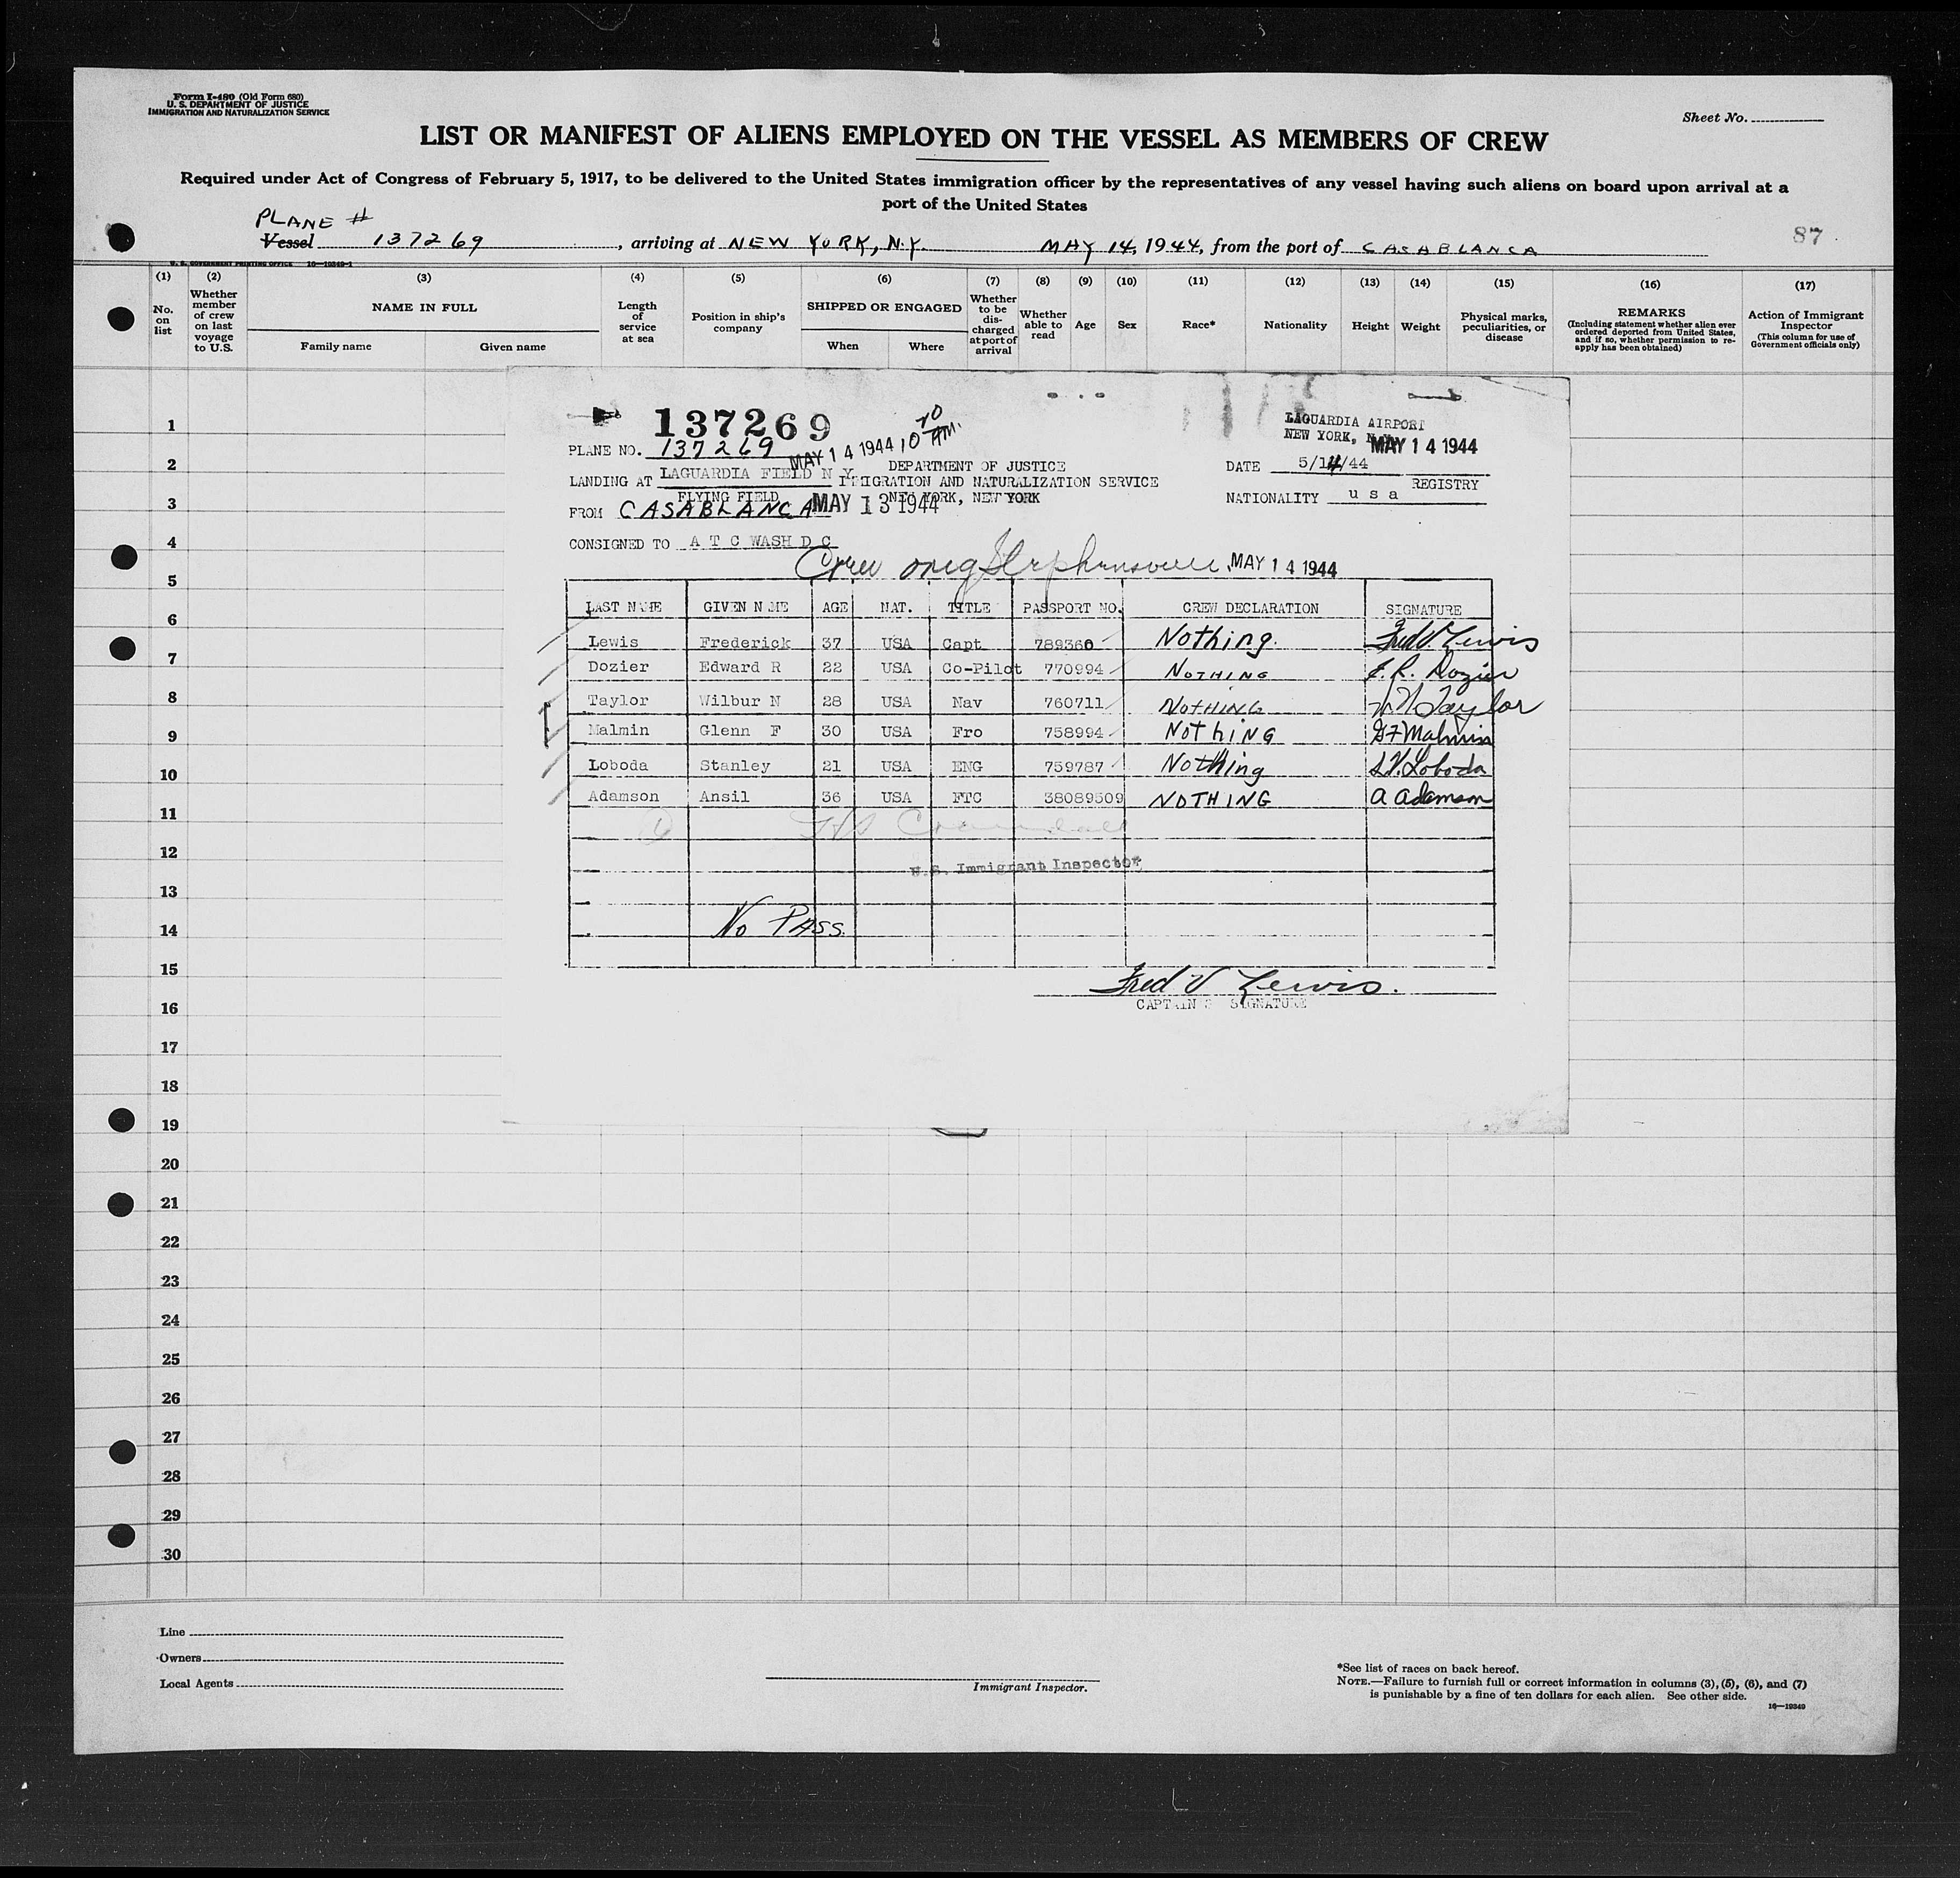 Form I-480 (Old Form 680)
U. S. DEPARTMENT OF JUSTICE
IMMIGRATION AND NATURALIZATION SERVICE
Sheet No.
LIST OR MANIFEST OF ALIENS EMPLOYED ON THE VESSEL AS MEMBERS OF CREW
Required under Act of Congress of February 5, 1917, to be delivered to the United States immigration officer by the representatives of any vessel having such aliens on board upon arrival at a
port of the United States
PLANE #
Vessel 137269, arriving at NEW YORK, N.Y. MAY 14, 1944, from the port of CASABLANCA
87
U. S. GOVERNMENT PRINTING OFFICE 16-19349-1
(1) (2) (3) (4) (5) (6) (7) (8) (9) (10) (11) (12) (13) (14) (15) (16) (17)
No. on list
Whether member of crew on last voyage to U.S.
NAME IN FULL
Family name Given name
Length of service at sea
Position in ship's company
SHIPPED OR ENGAGED
When Where
Whether to be discharged at port of arrival
Whether able to read
Age
Sex
Race*
Nationality
Height
Weight
Physical marks, peculiarities, or disease
REMARKS
(Including statement whether alien ever ordered deported from United States, and if so, whether permission to re-apply has been obtained)
Action of Immigrant Inspector
(This column for use of Government officials only)
137269
LAGUARDIA AIRPORT
NEW YORK, N.Y.
MAY 14 1944
PLANE NO. 137269
MAY 14 1944 10 AM.
DEPARTMENT OF JUSTICE
DATE 5/14/44
LANDING AT LAGUARDIA FIELD N Y
IMMIGRATION AND NATURALIZATION SERVICE
REGISTRY
FLYING FIELD
NEW YORK, NEW YORK
NATIONALITY u s a
FROM CASABLANCA MAY 13 1944
CONSIGNED TO A T C WASH D C
Crew orig Stephensville MAY 14 1944
LAST NAME GIVEN NAME AGE NAT. TITLE PASSPORT NO. CREW DECLARATION SIGNATURE
Lewis Frederick 37 USA Capt 789360 Nothing. Fred V. Lewis
Dozier Edward R 22 USA Co-Pilot 770994 NOTHING E. R. Dozier
Taylor Wilbur N 28 USA Nav 760711 NOTHING W N Taylor
Malmin Glenn F 30 USA Fro 758994 NOTHING G F Malmin
Loboda Stanley 21 USA ENG 759787 Nothing S.V. Loboda
Adamson Ansil 36 USA FTC 38089509 NOTHING A Adamson
U.S. Immigrant Inspector
No PASS.
Fred V Lewis.
CAPTAIN S SIGNATURE
1
2
3
4
5
6
7
8
9
10
11
12
13
14
15
16
17
18
19
20
21
22
23
24
25
26
27
28
29
30
Line
Owners
Local Agents
Immigrant Inspector.
*See list of races on back hereof.
NOTE.—Failure to furnish full or correct information in columns (3), (5), (6), and (7)
is punishable by a fine of ten dollars for each alien. See other side.
16—19349